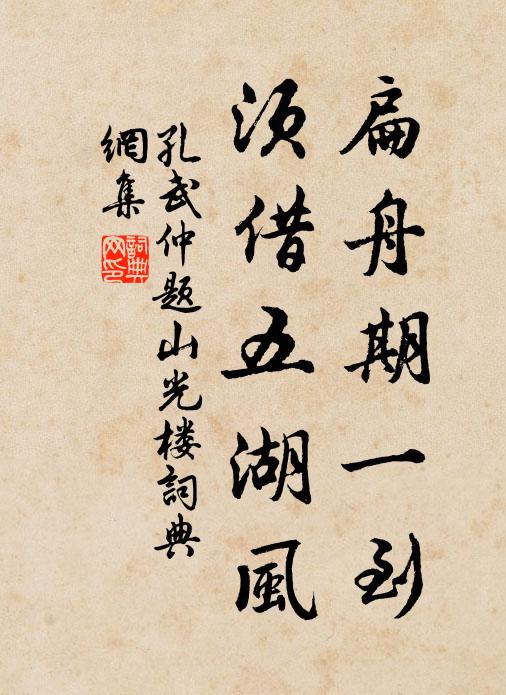 扁舟期一到
須借五湖風
孔武仲題山光楼詞典
網集
詞典
网印